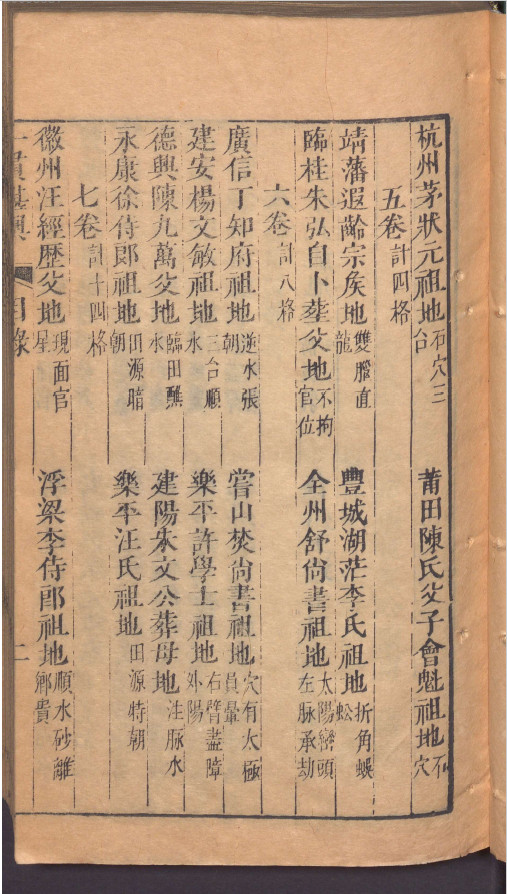 杭州茅狀元祖地石穴三台　莆田陳氏父子會魁祖地石穴
五卷計四格
靖藩遐齡宗矦地雙直龍　豐城湖茫李氏祖地折角蜈蚣
臨桂朱弘自卜塟父地不拘官位　全州舒尚書祖地太陽巒頭左脉承劫
六卷計八格
廣信丁知府祖地逆水張朝　嘗山焚尚書祖地穴有太極員暈
建安楊文敏祖地三台順水　樂平許學士祖地右臂盡障外陽
德興陳九萬父地臨田蘸水　建陽朱文公葬母地注脉水
永康徐侍郎祖地田源暗朝　樂平汪氏祖地田源特朝
七卷計十四格
徽州汪經歷父地現面官星　浮梁李侍郎祖地順水砂離鄉貴
一貫堪輿　目錄　二